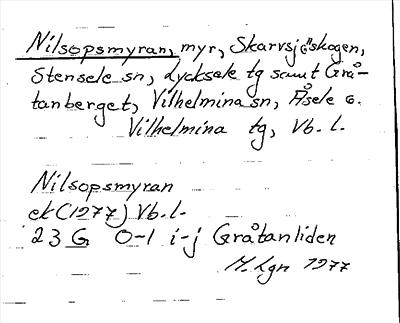 Nilsopsmyran, myr, Skarvsjöskogen,
Stensele sn, Lycksele tg samt Grå-
tanberget, Vilhelmina sn, Åsele o.
Vilhelmina tg, Vb. l.
Nilsopsmyran
ek (1977) Vb. l.
23 G 0-1 i-j Gråtanliden
M. Lgn 1977